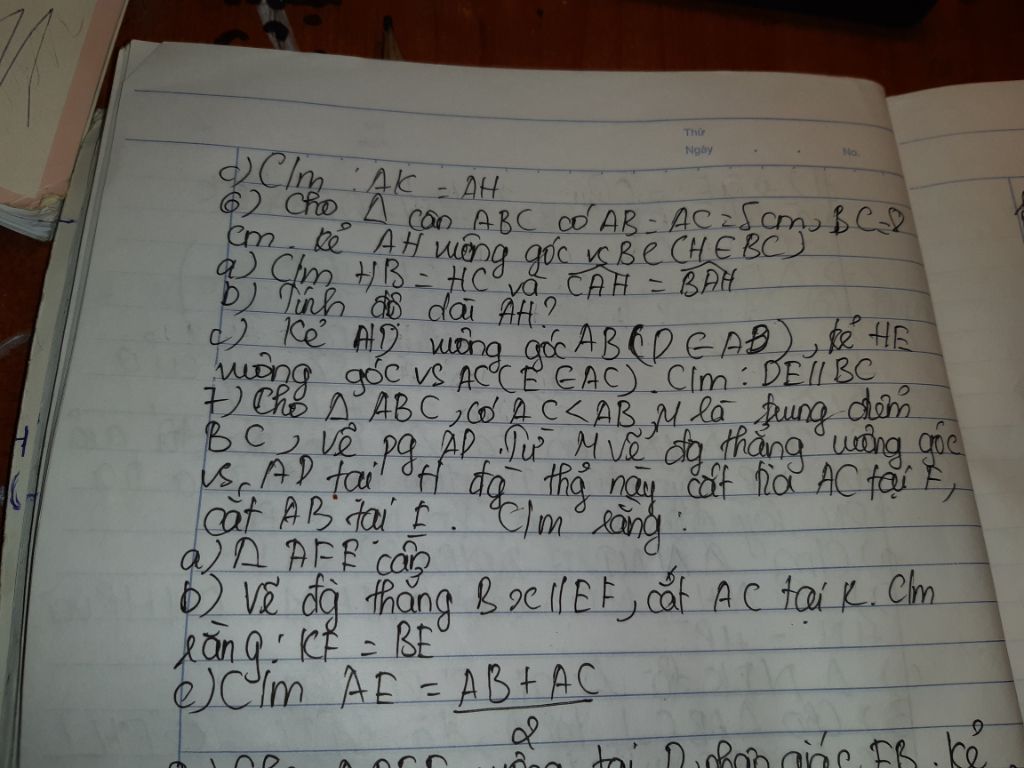 Thứ
Ngày . . No.
d) C/m : AK = AH
6) Cho Δ cân ABC có AB = AC = 5cm, BC = 8
cm. Kẻ AH vuông góc vs BC (H ∈ BC)
a) C/m HB = HC và CAH = BAH
b) Tính độ dài AH?
c) Kẻ HD vuông góc AB (D ∈ AB), kẻ HE
vuông góc vs AC (E ∈ AC). C/m : DE // BC
7) Cho Δ ABC, có AC < AB, M là trung điểm
BC, vẽ pg AD. Từ M vẽ đg thẳng vuông góc
vs AD tại H đg thg này cắt tia AC tại F,
cắt AB tại E. C/m rằng :
a) Δ AFE cân
b) Vẽ đg thẳng Bx // EF, cắt AC tại K. C/m
rằng : KF = BE
c) C/m AE = AB + AC
2
vuông tại D, phân giác EB. Kẻ